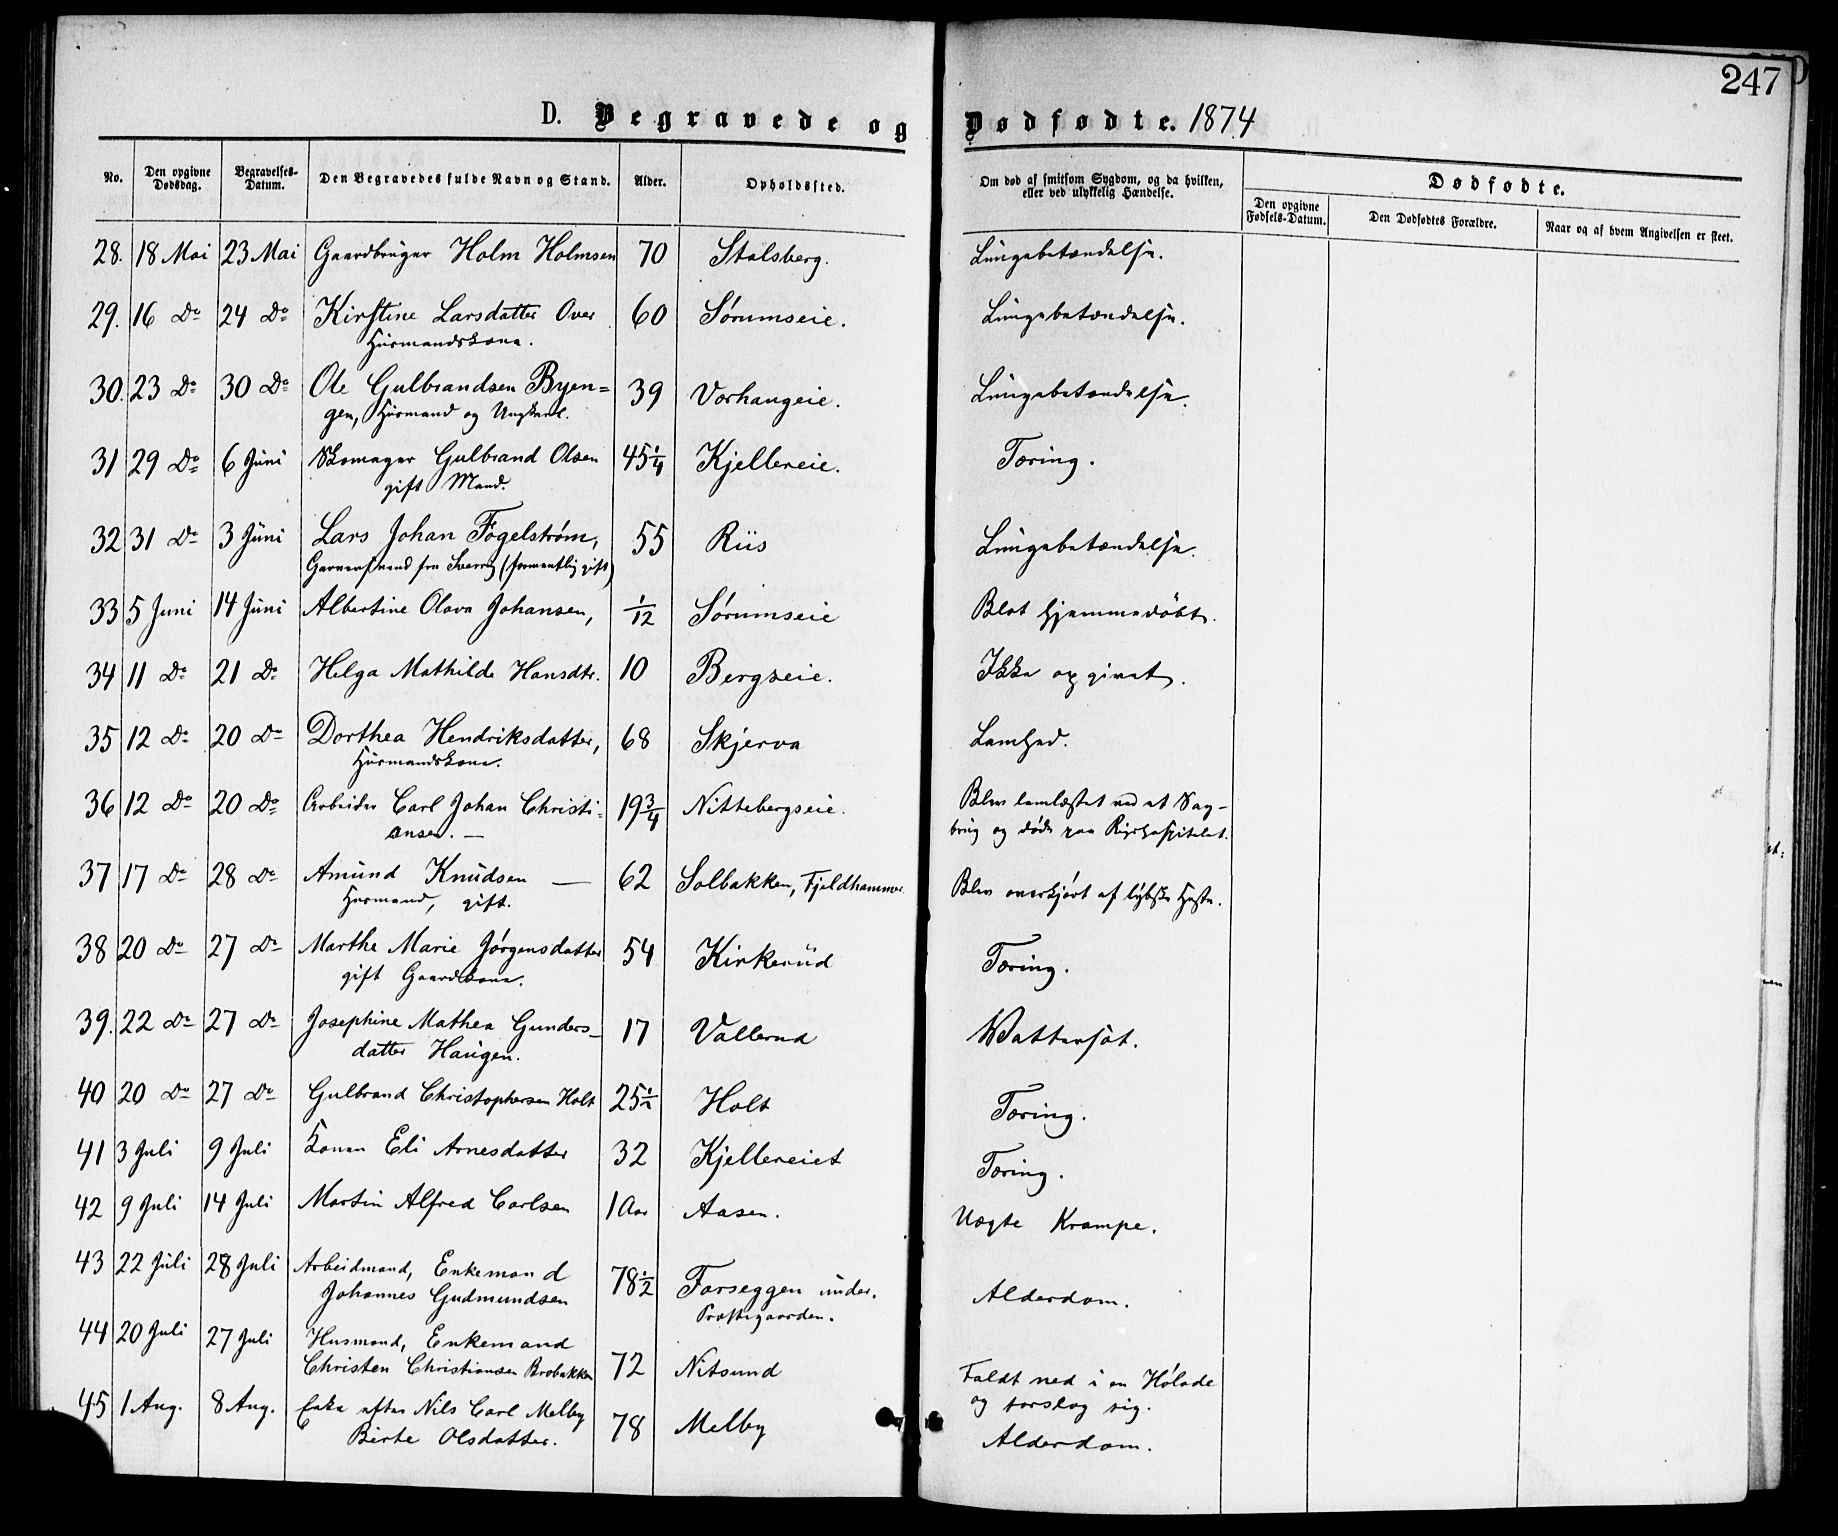 247
D. Begravede og Dødfødte. 1874
No. Den opgivne Dødsdag. Begravelses-Datum. Den Begravedes fulde Navn og Stand. Alder. Opholdssted. Om død af smitsom Sygdom, og da hvilken, eller ved ulykkelig Hændelse. Dødfødte.
Den opgivne Fødsels-Datum. Den Dødfødtes Forældre. Naar og af hvem Angivelsen er skeet.
28. 18 Mai 23 Mai Gaardbruger Holm Holmsen 70 Stalsberg. Lungebetændelse.
29. 16 Do 24 Do Kirstine Larsdatter Over 60 Sørumseie. Lungebetændelse.
Husmandskone.
30. 23 Do 30 Do Ole Gulbrandsen Byen= 39 Vorhaugeie. Lungebetændelse.
gen, Husmand og Ungkarl.
31 29 Do 6 Juni Skomager Gulbrand Olsen 45 1/4 Kjellereie. Tæring.
gift Mand.
32 31 Do 3 Juni Lars Johan Fogelstrøm, 55 Riis Lungebetændelse.
fra Sverrig (formentlig gift)
33 5 Juni 14 Juni Albertine Olava Johansen, 1/12 Sørumseie Blot hjemmedöbt.
34 11 Do 21 Do Helga Mathilde Hansdtr. 10 Bergseie. Ikke opgivet.
35 12 Do 20 Do Dorthea Hendriksdatter, 68 Skjerva Lamhed.
Husmandskone.
36 12 Do 20 Do Arbeider Carl Johan Christi= 19 3/4 Nittebergseie. Blev lemlæstet ved et Sag-
ansen. — brug og døde paa Rigshospitalet.
37 17 Do 28 Do Amund Knudsen — 62 Solbakken, Fjeldhammer Blev overkjørt af løbske Heste.
Husmand, gift.
38 20 Do 27 Do Marthe Marie Jørgensdatter 54 Kirkerud Tæring.
gift Gaardkone.
39. 22 Do 27 Do Josephine Mathea Gunders- 17 Vallerud Wattersot.
datter Haugen.
40 20 Do 27 Do Gulbrand Christophersen Holt 25 1/2 Holt Tæring.
41 3 Juli 9 Juli Konen Eli Arnesdatter 32 Kjellereiet Tæring.
42 9 Juli 14 Juli Martin Alfred Carlsen 1 Aar Aasen. Uægte Krampe.
43 22 Juli 28 Juli Arbeidmand, Enkemand 78 1/2 Farseggen under. Alderdom.
Johannes Gudmundsen Præstegaarden.
44 20 Juli 27 Juli Husmand, Enkemand
Christen Christiansen Brobakken 72 Nitsund Faldt ned i en Hølade
og forslog sig.
45 1 Aug. 8 Aug. Enke efter Nils Carl Melby 78 Melby Alderdom.
Birte Olsdatter.